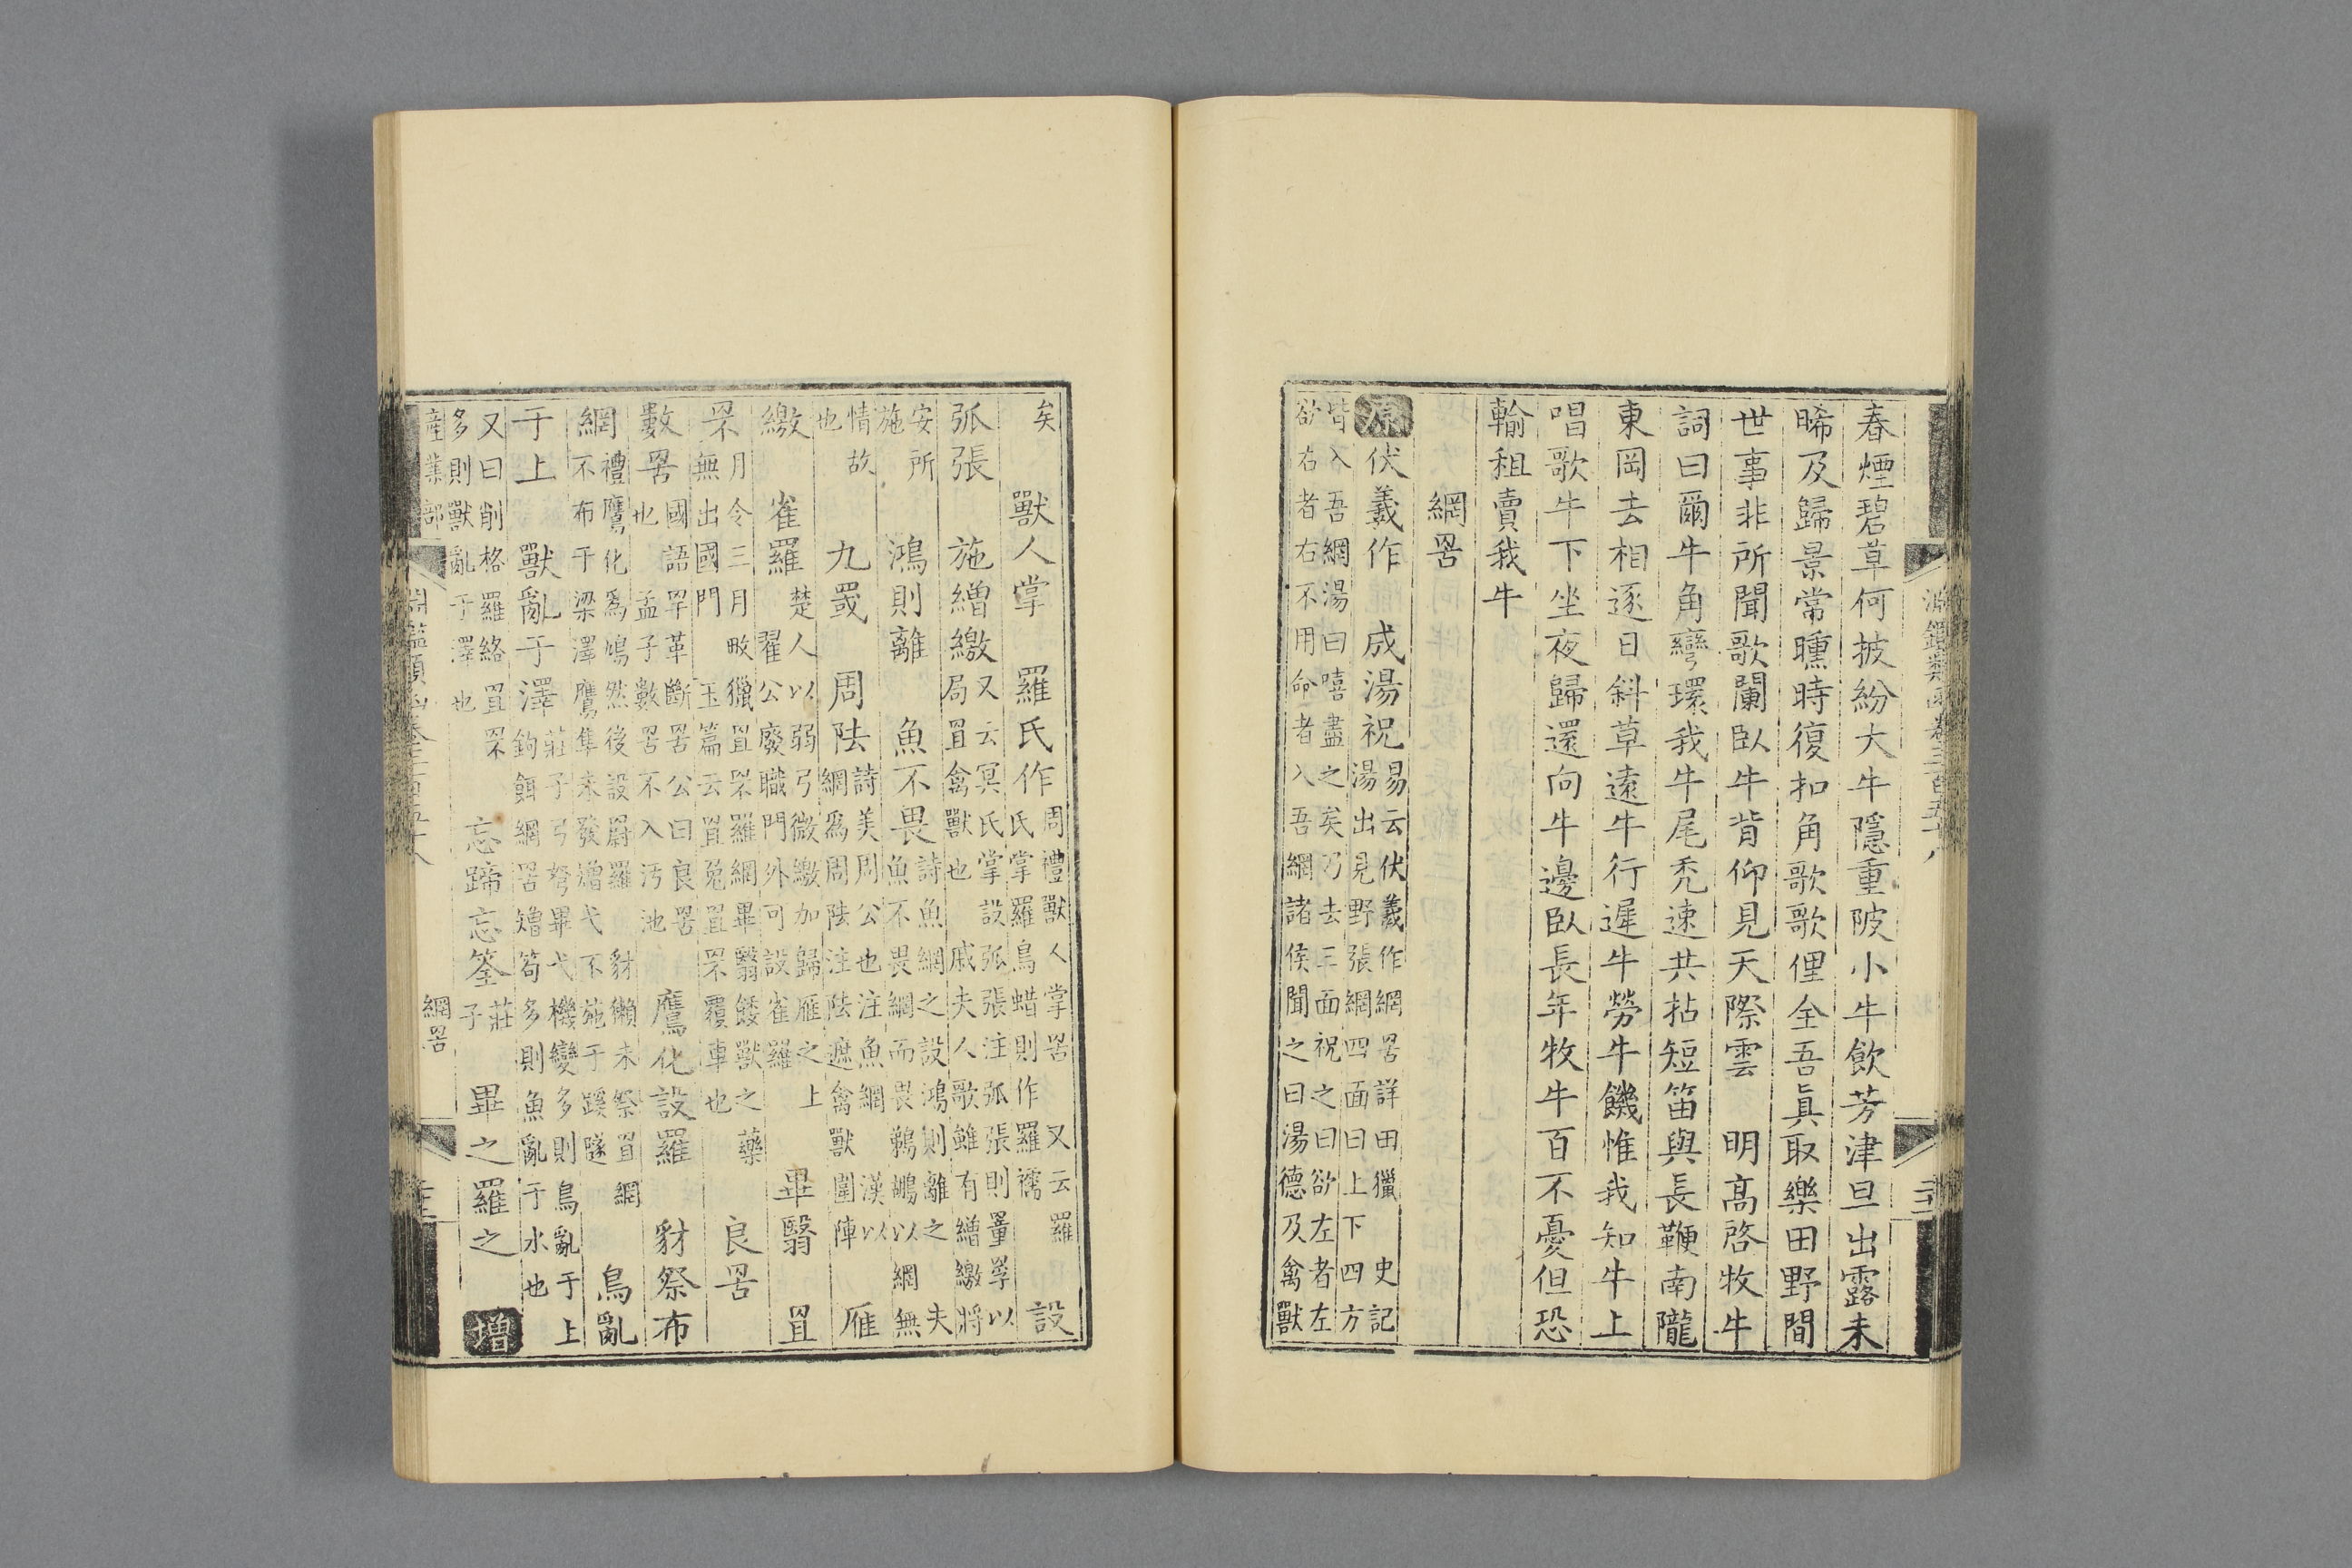 春煙碧草何披紛大牛隱重陂小牛飲芳津旦出露未
晞及歸景常曛時復扣角歌歌俚全吾眞取樂田野間
世事非所聞歌闌臥牛背仰見天際雲　明高啓牧牛
詞曰爾牛角彎環我牛尾禿速共拈短笛與長鞭南隴
東岡去相逐日斜草遠牛行遲牛勞牛饑惟我知牛上
唱歌牛下坐夜歸還向牛邊臥長年牧牛百不憂但恐
輸租賣我牛
網罟
原伏義作　成湯祝易云伏義作網罟詳田獵　史記
湯出見野張網四面曰上下四方
皆入吾網湯曰嘻盡之矣乃去三面祝之曰欲左者左
欲右者右不用命者入吾網諸侯聞之曰湯德及禽獸
矣　獸人掌　羅氏作周禮獸人掌罟　又云羅
氏掌羅烏蜡則作羅襦　設
弧張　施繒繳又云冥氏掌設弧張注弧張則罿罦以
局罝禽獸也　戚夫人歌雖有繒繳將
安所
施　鴻則離　魚不畏詩魚網之設鴻則離之　夫
魚不畏網而畏鵜鶘以網無
情故
也　九罭　周阹詩美周公也注魚網　漢以
網爲周阹注阹遮禽獸圍陣　雁
繳　雀羅楚人以弱弓微繳加歸雁之上
翟公廢職門外可設雀羅　畢翳　罝
罘月令三月畋獵罝罘羅網畢翳餧獸之藥
無出國門　玉篇云罝兔罝罘覆車也　良罟
數罟國語罕革斷罟公曰良罟
也　孟子數罟不入汚池　鷹化設羅　豺祭布
網禮鷹化爲鳩然後設罻羅　豺獺未祭罝網
不布于梁澤鷹隼未發矰弋不施于蹊隧　鳥亂
于上　獸亂于澤莊子弓弩畢弋機變多則鳥亂于上
鉤餌網罟罾笱多則魚亂于水也
又曰削格羅絡罝罘
多則獸亂于澤也　忘蹄忘筌莊
子　畢之羅之　增
產業部　網罟